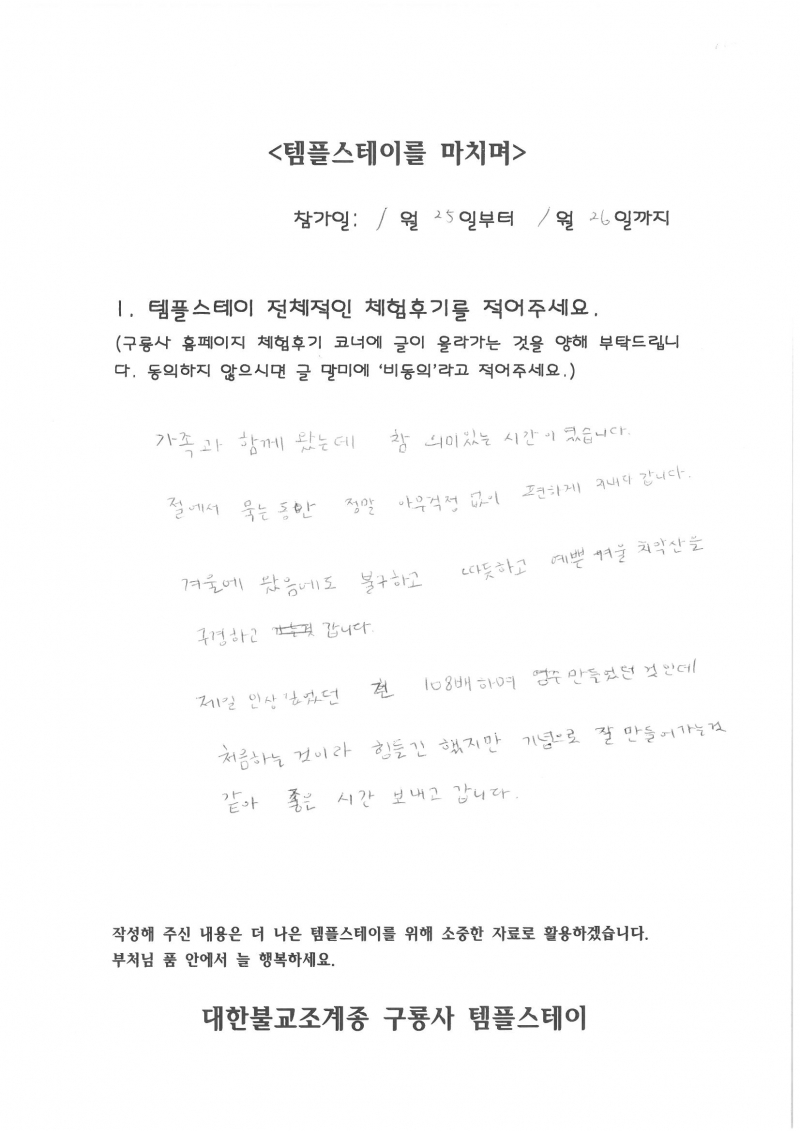 <템플스테이를 마치며>
참가일: 1 월 25일부터 1월 26일까지
1. 템플스테이 전체적인 체험후기를 적어주세요.
(구룡사 홈페이지 체험후기 코너에 글이 올라가는 것을 양해 부탁드립니
다. 동의하지 않으시면 글 말미에 '비동의'라고 적어주세요.)
가족과 함께 왔는데 참 의미있는 시간이 였습니다.
절에서 묵는 동안 정말 아무걱정 없이 편하게 지내다 갑니다.
겨울에 왔음에도 불구하고 따듯하고 예쁜 겨울 치악산을
구경하고 갑니다.
제일 인상깊었던 건 108배하며 염주만들었던 것인데
처음하는 것이라 힘들긴 했지만 기념으로 잘 만들어가는것
같아 좋은 시간 보내고 갑니다.
작성해 주신 내용은 더 나은 템플스테이를 위해 소중한 자료로 활용하겠습니다.
부처님 품 안에서 늘 행복하세요.
대한불교조계종 구룡사 템플스테이